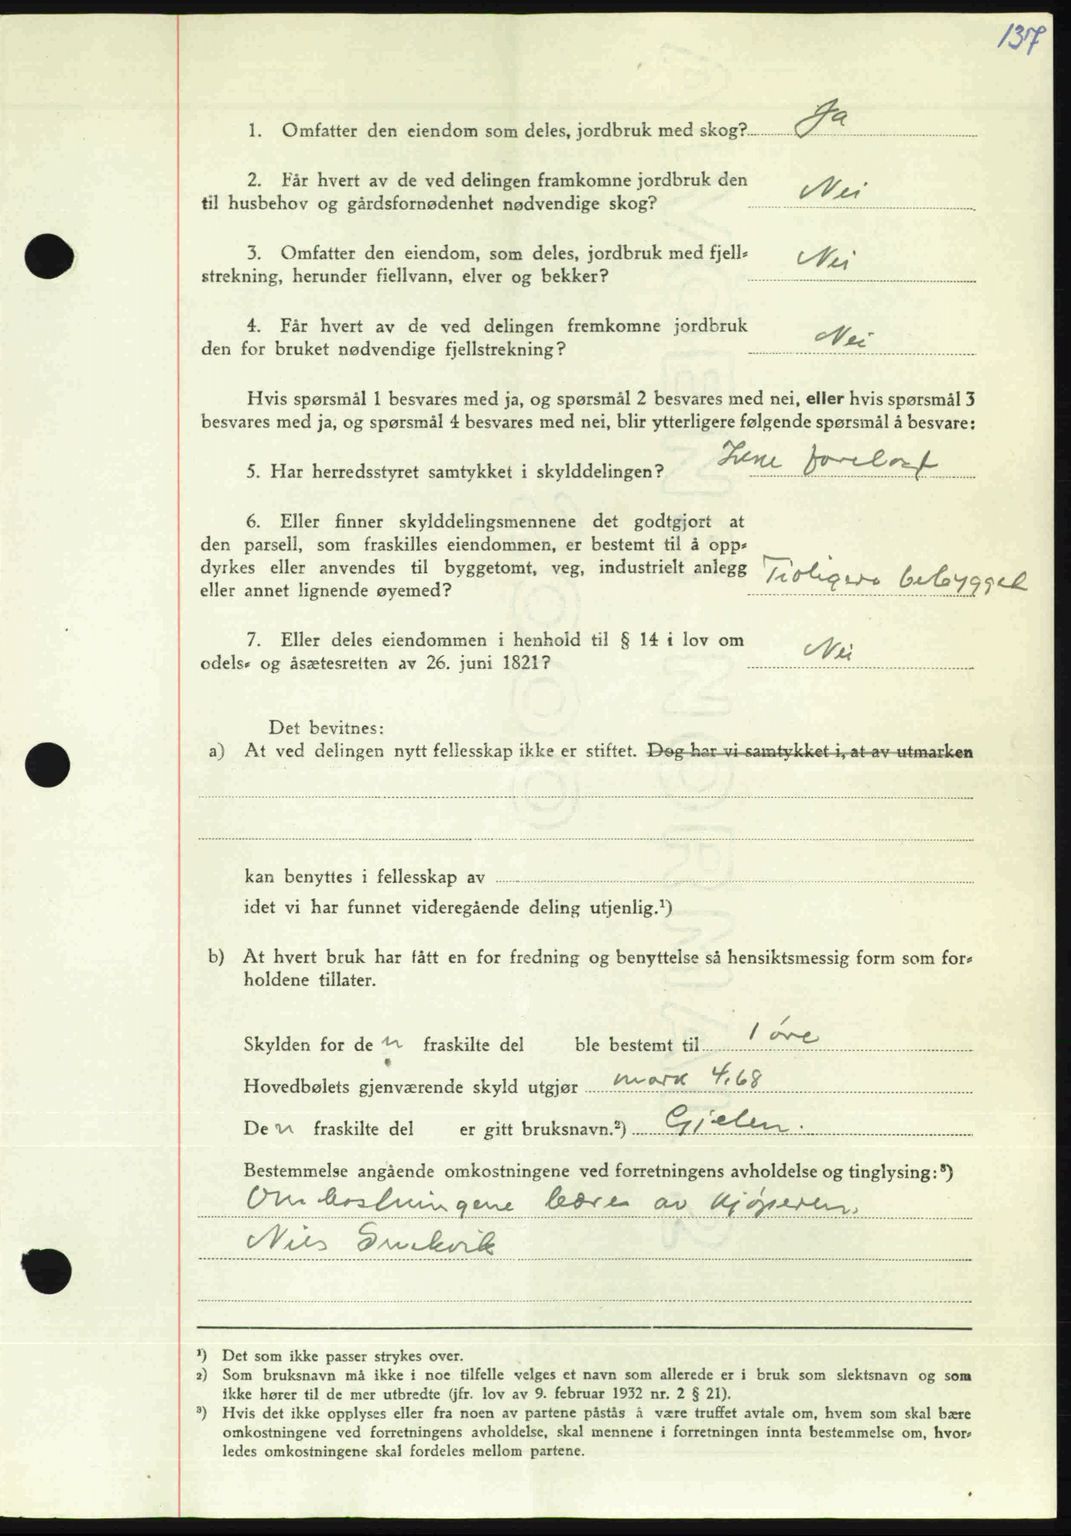 137
1. Omfatter den eiendom som deles, jordbruk med skog? Ja
2. Får hvert av de ved delingen framkomne jordbruk den
til husbehov og gårdsfornødenhet nødvendige skog? Nei
3. Omfatter den eiendom, som deles, jordbruk med fjell-
strekning, herunder fiellvann, elver og bekker? Nei
4. Får hvert av de ved delingen fremkomne jordbruk
den for bruket nødvendige fjellstrekning? Nei
Hvis spørsmål 1 besvares med ja, og spørsmål 2 besvares med nei, eller hvis spørsmål 3
besvares med ja, og spørsmål 4 besvares med nei, blir ytterligere følgende spørsmål å besvare:
5. Har herredsstyret samtykket i skylddelingen?
6. Eller finner skylddelingsmennene det godtgjort at
den parsell, som fraskilles eiendommen, er bestemt til å opp-
dyrkes eller anvendes til byggetomt, veg, industrielt anlegg
eller annet lignende øyemed? bebygget
7. Eller deles eiendommen i henhold til § 14 i lov om
odels- og åsætesretten av 26. juni 1821? Nei
Det bevitnes:
a) At ved delingen nytt fellesskap ikke er stiftet. Dog har vi samtykket i, at av utmarken
kan benyttes i fellesskap av
idet vi har funnet videregående deling utjenlig.¹)
b) At hvert bruk har fått en for fredning og benyttelse så hensiktsmessig form som for-
holdene tillater.
Skylden for den fraskilte del ble bestemt til 1 øre
Hovedbølets gjenværende skyld utgjør mark 4.68
Den fraskilte del er gitt bruksnavn.²) Gjelen.
Bestemmelse angående omkostningene ved forretningens avholdelse og tinglysing:³)
Omkostningene bæres av kjøperen,
Nils
¹) Det som ikke passer strykes over.
²) Som bruksnavn må ikke i noe tilfelle velges et navn som allerede er i bruk som slektsnavn og som
ikke hører til de mer utbredte (jfr. lov av 9. februar 1932 nr. 2 § 21).
³) Hvis det ikke opplyses eller fra noen av partene påstås å være truffet avtale om, hvem som skal bære
omkostningene ved forretningens avholdelse, skal mennene i forretningen innta bestemmelse om, hvor-
ledes omkostningene skal fordeles mellom partene.